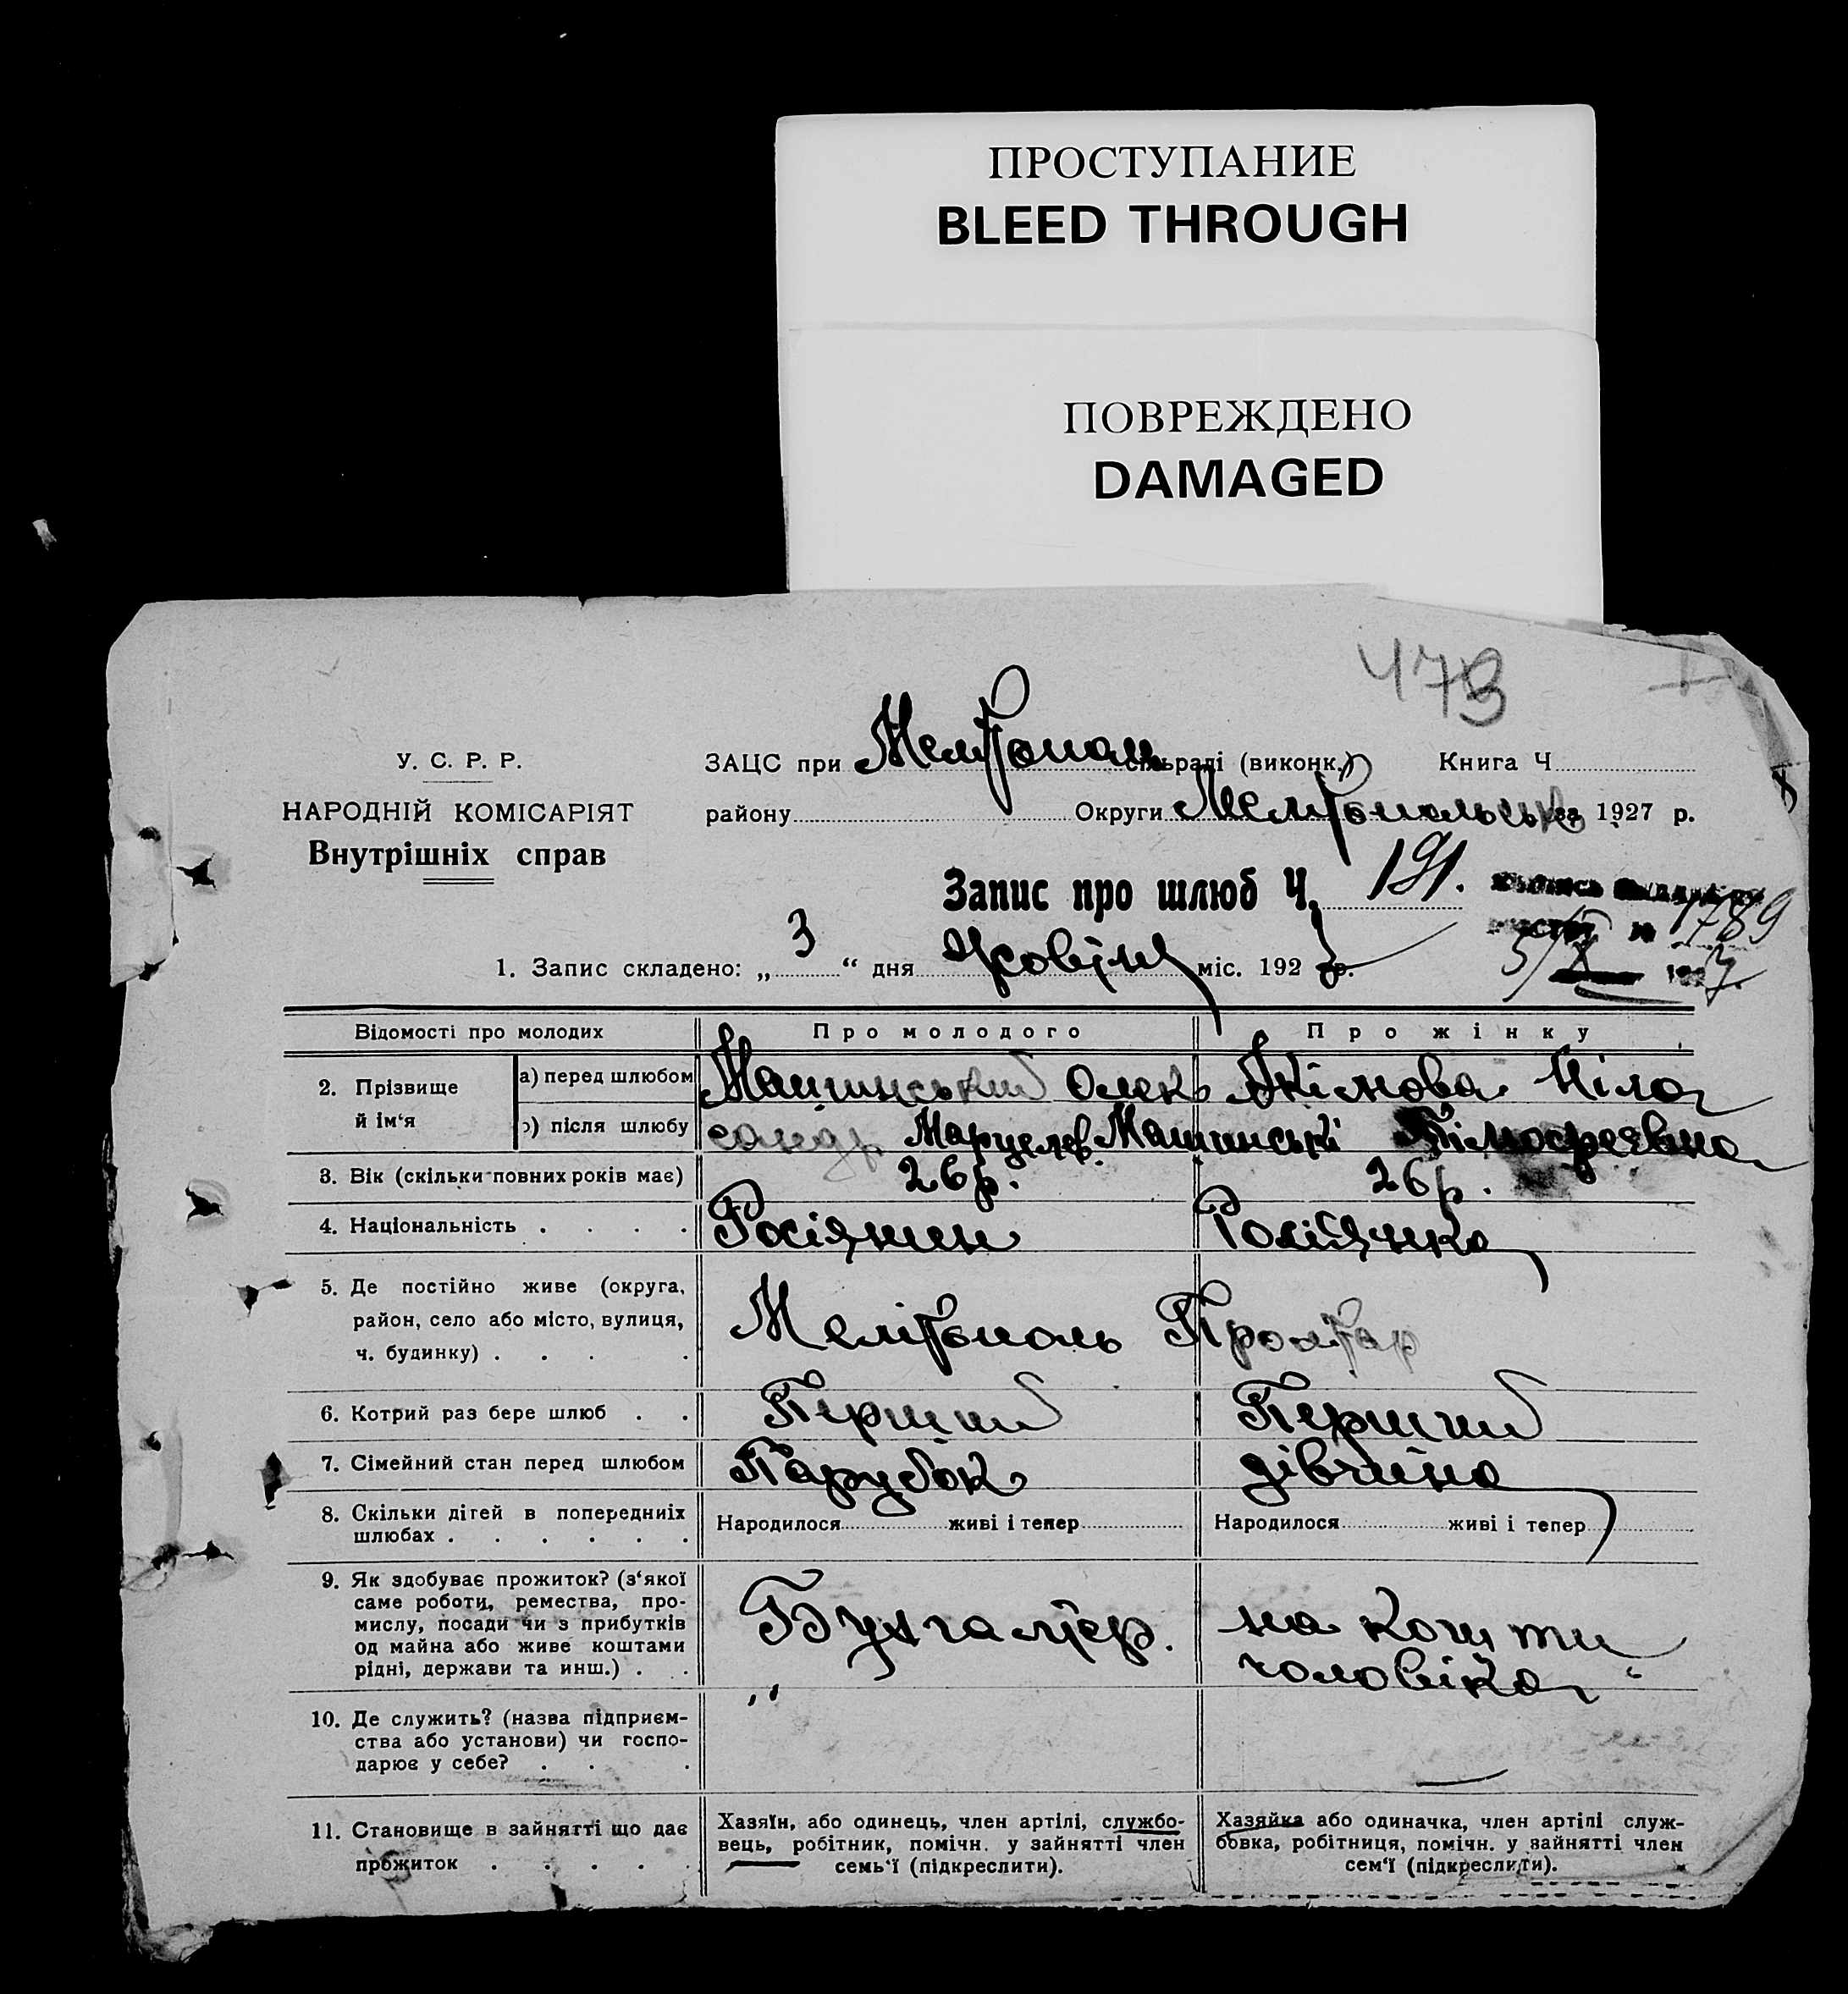 ПРОСТУПАНИЕ
BLEED THROUGH
ПОВРЕЖДЕНО
DAMAGED
473
У. С. Р. Р.
НАРОДНІЙ КОМІСАРІЯТ
Внутрішніх справ
ЗАЦС при Мелітопол сільраді (виконк.) Книга Ч.
району Округи Мелітопольськ за 1927 р.
Запис про шлюб Ч. 191.
1789
5/X 1927.
1. Запис складено: „ 3 “ дня Жовтня міс. 1927 р.
Відомості про молодих Про молодого Про жінку
2. Прізвище й ім‘я
а) перед шлюбом Машинський Олек Якімова Ніла
б) після шлюбу сандр Марцелев Машинські Тімофеевна
3. Вік (скільки повних років має) 26 р. 26 р.
4. Національність Росіянин Росіянка
5. Де постійно живе (округа,
район, село або місто, вулиця,
ч. будинку) Мелітополь
6. Котрий раз бере шлюб Перший Перший
7. Сімейний стан перед шлюбом Парубок дівчина
8. Скільки дітей в попередніх
шлюбах
Народилося живі і тепер Народилося живі і тепер
9. Як здобуває прожиток? (з‘якої
саме роботи, ремества, про-
мислу, посади чи з прибутків
од майна або живе коштами
рідні, держави та инш.)
Бухгалтер. на кошти
чоловіка
10. Де служить? (назва підприєм-
ства або установи) чи госпо-
дарює у себе?
„
11. Становище в зайнятті що дає
прожиток
Хазяїн, або одинець, член артілі, службо-
вець, робітник, помічн. у зайнятті член
семь‘ї (підкреслити).
Хазяйка або одиначка, член артілі служ-
бовка, робітниця, помічн. у зайнятті член
сем‘ї (підкреслити).